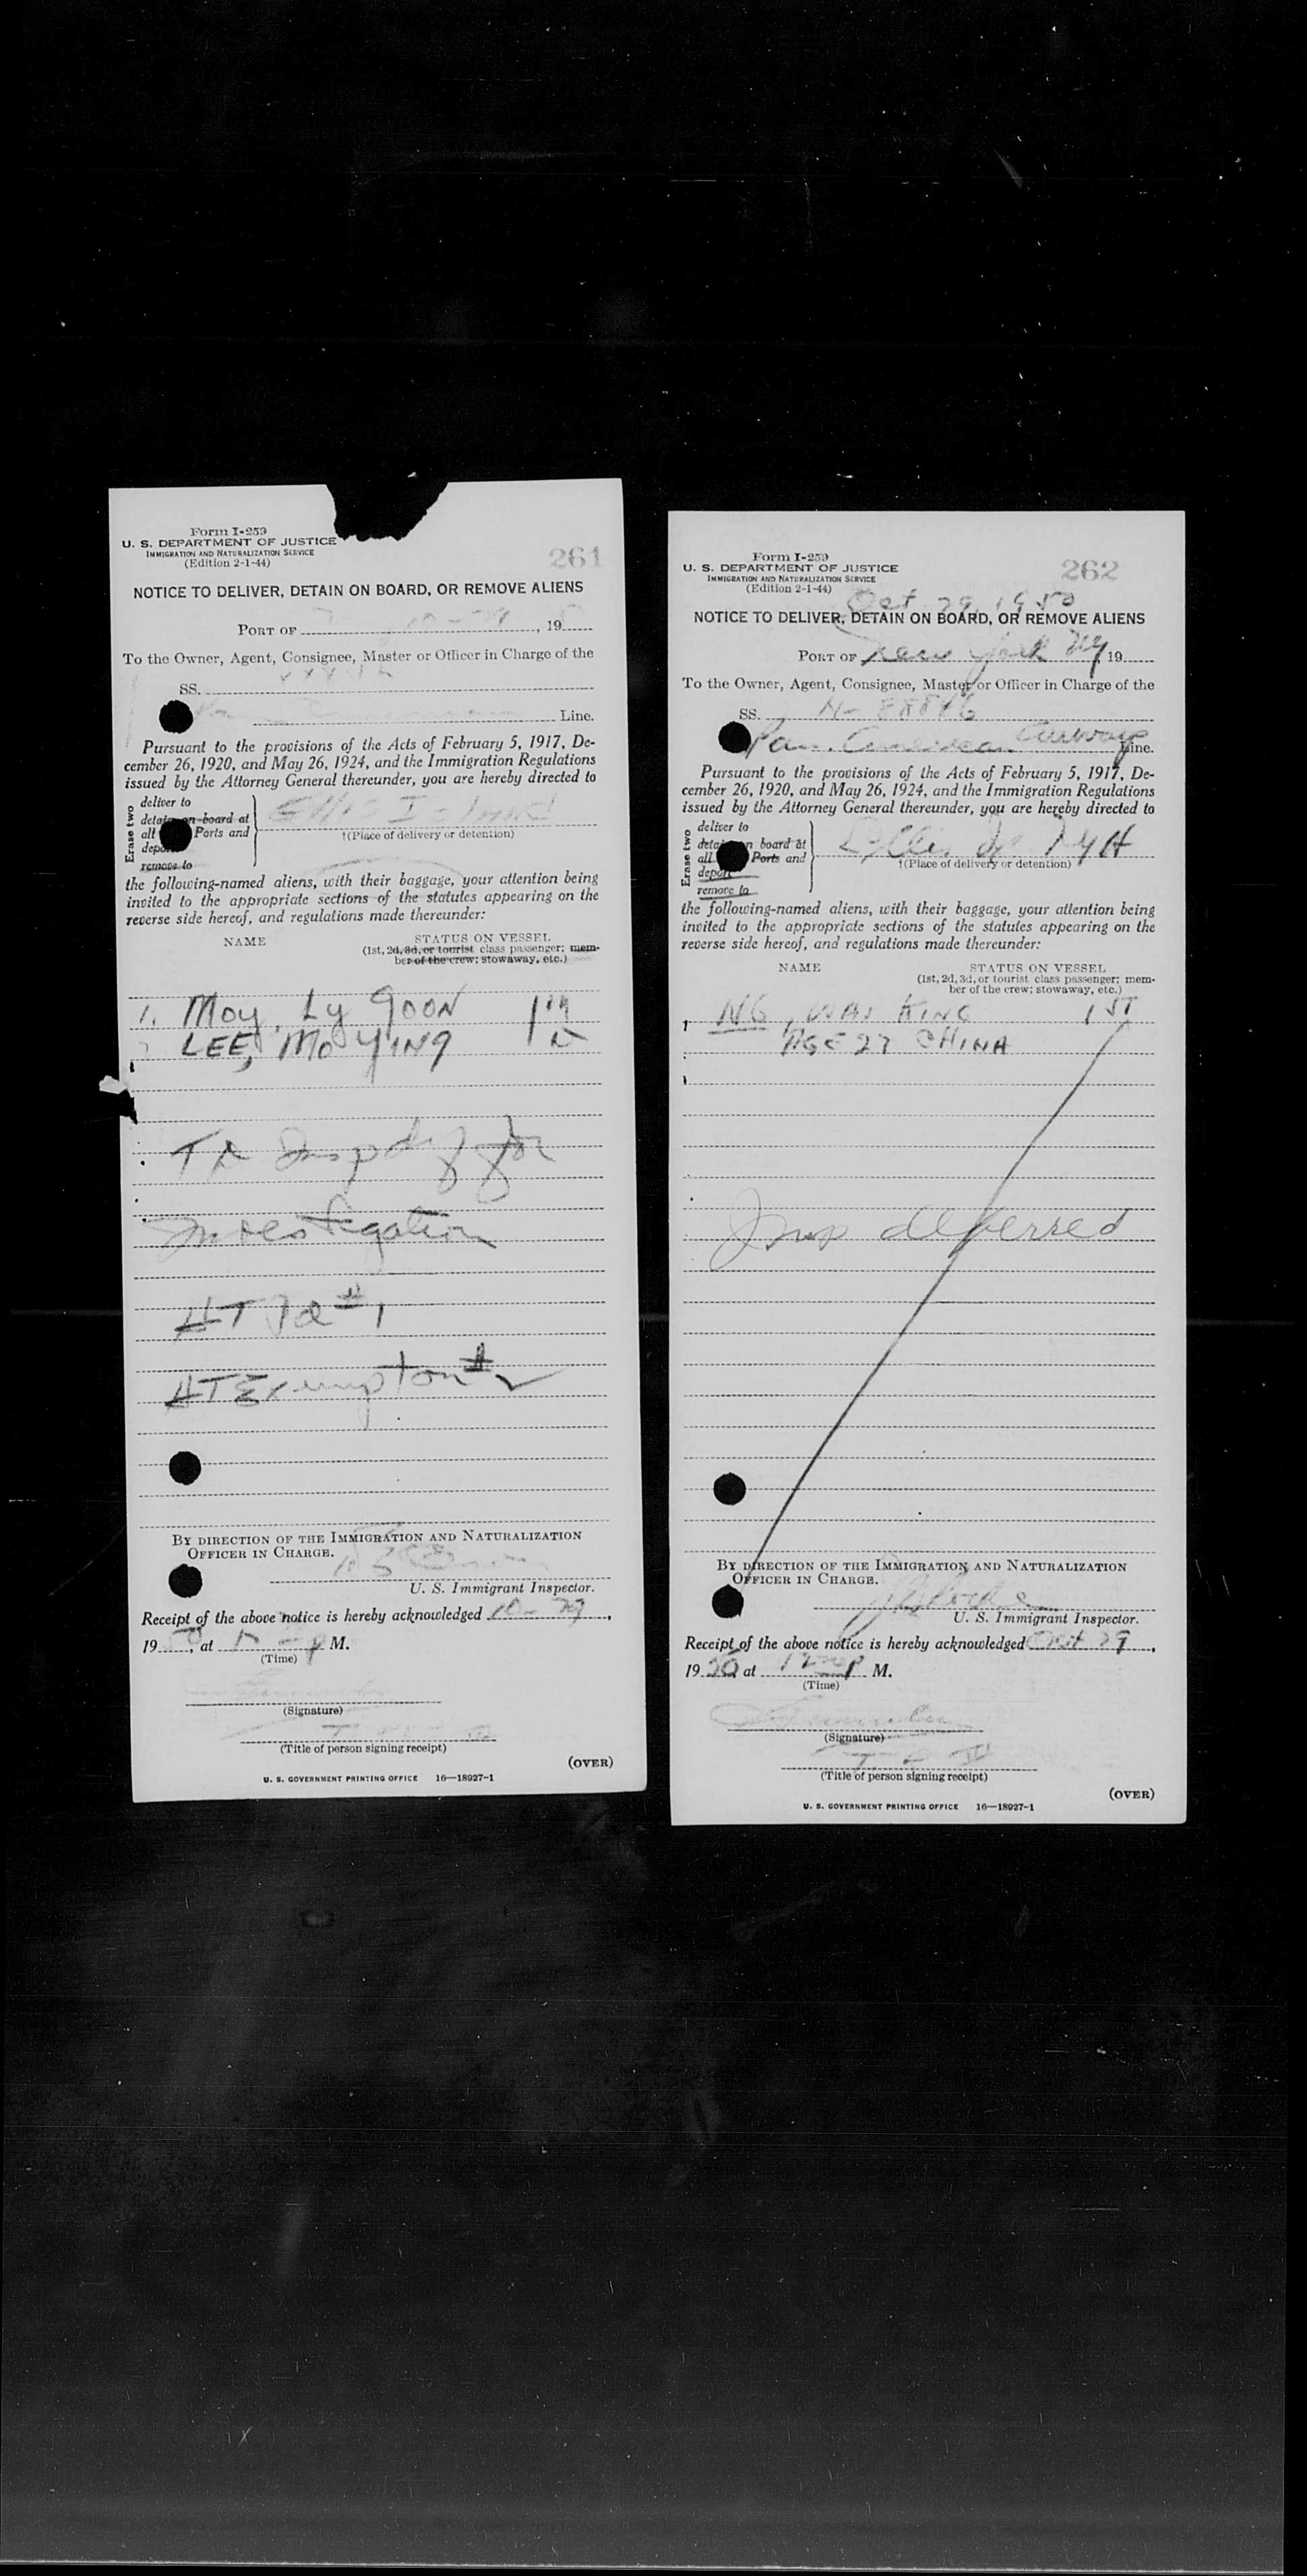 Form I-259
U. S. DEPARTMENT OF JUSTICE
IMMIGRATION AND NATURALIZATION SERVICE
(Edition 2-1-44)
261
NOTICE TO DELIVER, DETAIN ON BOARD, OR REMOVE ALIENS
PORT OF 10-29, 19
To the Owner, Agent, Consignee, Master or Officer in Charge of the
SS.
Line.
Pursuant to the provisions of the Acts of February 5, 1917, De-
cember 26, 1920, and May 26, 1924, and the Immigration Regulations
issued by the Attorney General thereunder, you are hereby directed to
Erase two
deliver to
detain on board at
all Ports and
depor
remove to
Ellis Island
†(Place of delivery or detention)
the following-named aliens, with their baggage, your attention being
invited to the appropriate sections of the statutes appearing on the
reverse side hereof, and regulations made thereunder:
NAME STATUS ON VESSEL
(1st, 2d, 3d, or tourist class passenger; mem-
ber of the crew; stowaway, etc.)
1. Moy, Ly Goon
LEE, Mo Ying
Insp for
Investigation
#1
By direction of the Immigration and Naturalization
Officer in Charge.
U. S. Immigrant Inspector.
Receipt of the above notice is hereby acknowledged 10-29,
1950, at M.
(Time)
(Signature)
(Title of person signing receipt)
(OVER)
U. S. GOVERNMENT PRINTING OFFICE 16—18927-1
Form I-259
U. S. DEPARTMENT OF JUSTICE
IMMIGRATION AND NATURALIZATION SERVICE
(Edition 2-1-44)
262
Oct 29, 1950
NOTICE TO DELIVER, DETAIN ON BOARD, OR REMOVE ALIENS
PORT OF New York NY 19
To the Owner, Agent, Consignee, Master or Officer in Charge of the
SS. N-88846
Pan. American Airways Line.
Pursuant to the provisions of the Acts of February 5, 1917, De-
cember 26, 1920, and May 26, 1924, and the Immigration Regulations
issued by the Attorney General thereunder, you are hereby directed to
Erase two
deliver to
detain on board at
all Ports and
deport
remove to
Ellis Is NYH
†(Place of delivery or detention)
the following-named aliens, with their baggage, your attention being
invited to the appropriate sections of the statutes appearing on the
reverse side hereof, and regulations made thereunder:
NAME STATUS ON VESSEL
(1st, 2d, 3d, or tourist class passenger; mem-
ber of the crew; stowaway, etc.)
1 NG, WAI KING 1ST
AGE 27 CHINA
Insp deferred
By direction of the Immigration and Naturalization
Officer in Charge.
U. S. Immigrant Inspector.
Receipt of the above notice is hereby acknowledged Oct 29,
1950 at P M.
(Time)
(Signature)
(Title of person signing receipt)
(OVER)
U. S. GOVERNMENT PRINTING OFFICE 16—18927-1